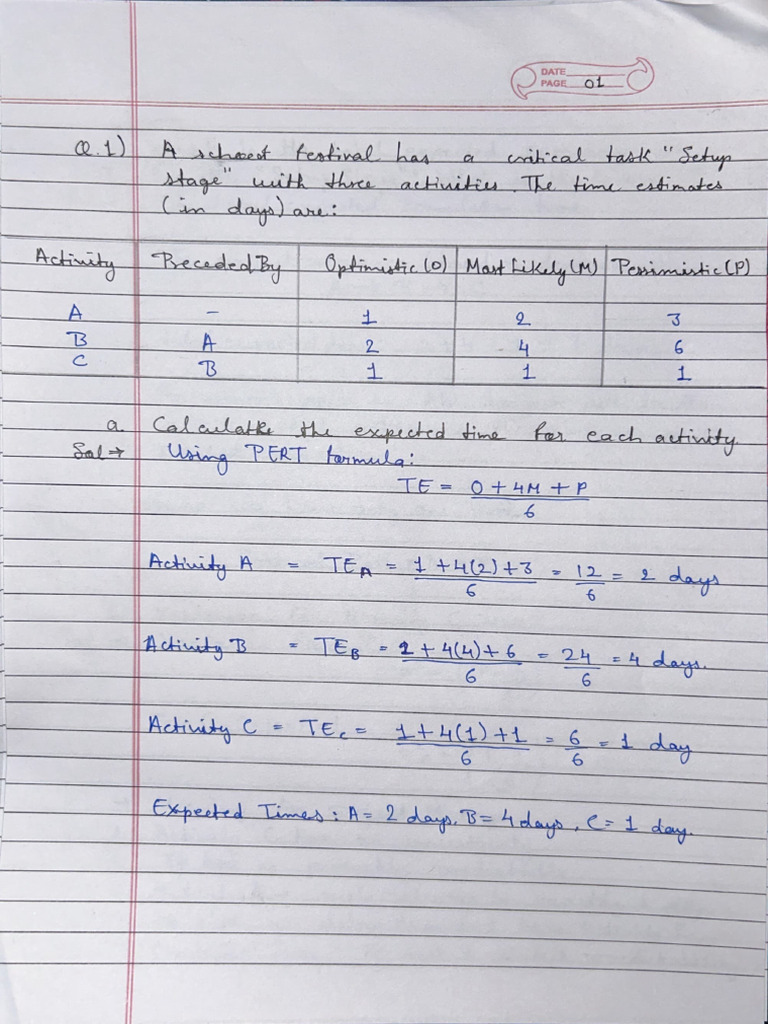 DATE
PAGE 01
Q.1) A school festival has a critical task "Setup
stage" with three activities. The time estimates
(in days) are:
Activity Preceded By Optimistic (O) Most Likely (M) Pessimistic (P)
A - 1 2 3
B A 2 4 6
C B 1 1 1
a. Calculatke the expected time for each activity.
Sol → Using PERT formula:
TE = O + 4M + P
6
Activity A = TE_A = 1 + 4(2) + 3 = 12 = 2 days
6 6
Activity B = TE_B = 2 + 4(4) + 6 = 24 = 4 days.
6 6
Activity C = TE_c = 1 + 4(1) + 1 = 6 = 1 day
6 6
Expected Times: A = 2 days, B = 4 days, C = 1 day.